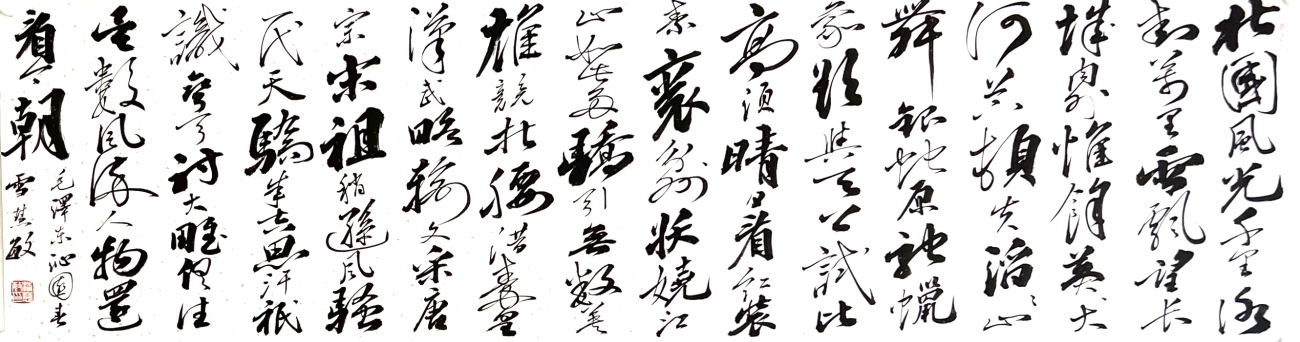 北國風光千里冰
封萬里雪飄望長
城內外惟餘莽大
河上下頓失滔〻山
舞銀蛇原馳蠟
象欲與天公試比
高須晴日看紅裝
素裹分外妖嬈江
山如此多驕引無數英
雄競折腰惜秦皇
漢武略輸文采唐
宗宋祖稍遜風騷
一代天驕成吉思汗祇
識彎弓射大雕俱往
矣數風流人物還
看今朝
毛澤東沁園春
雪慧敏